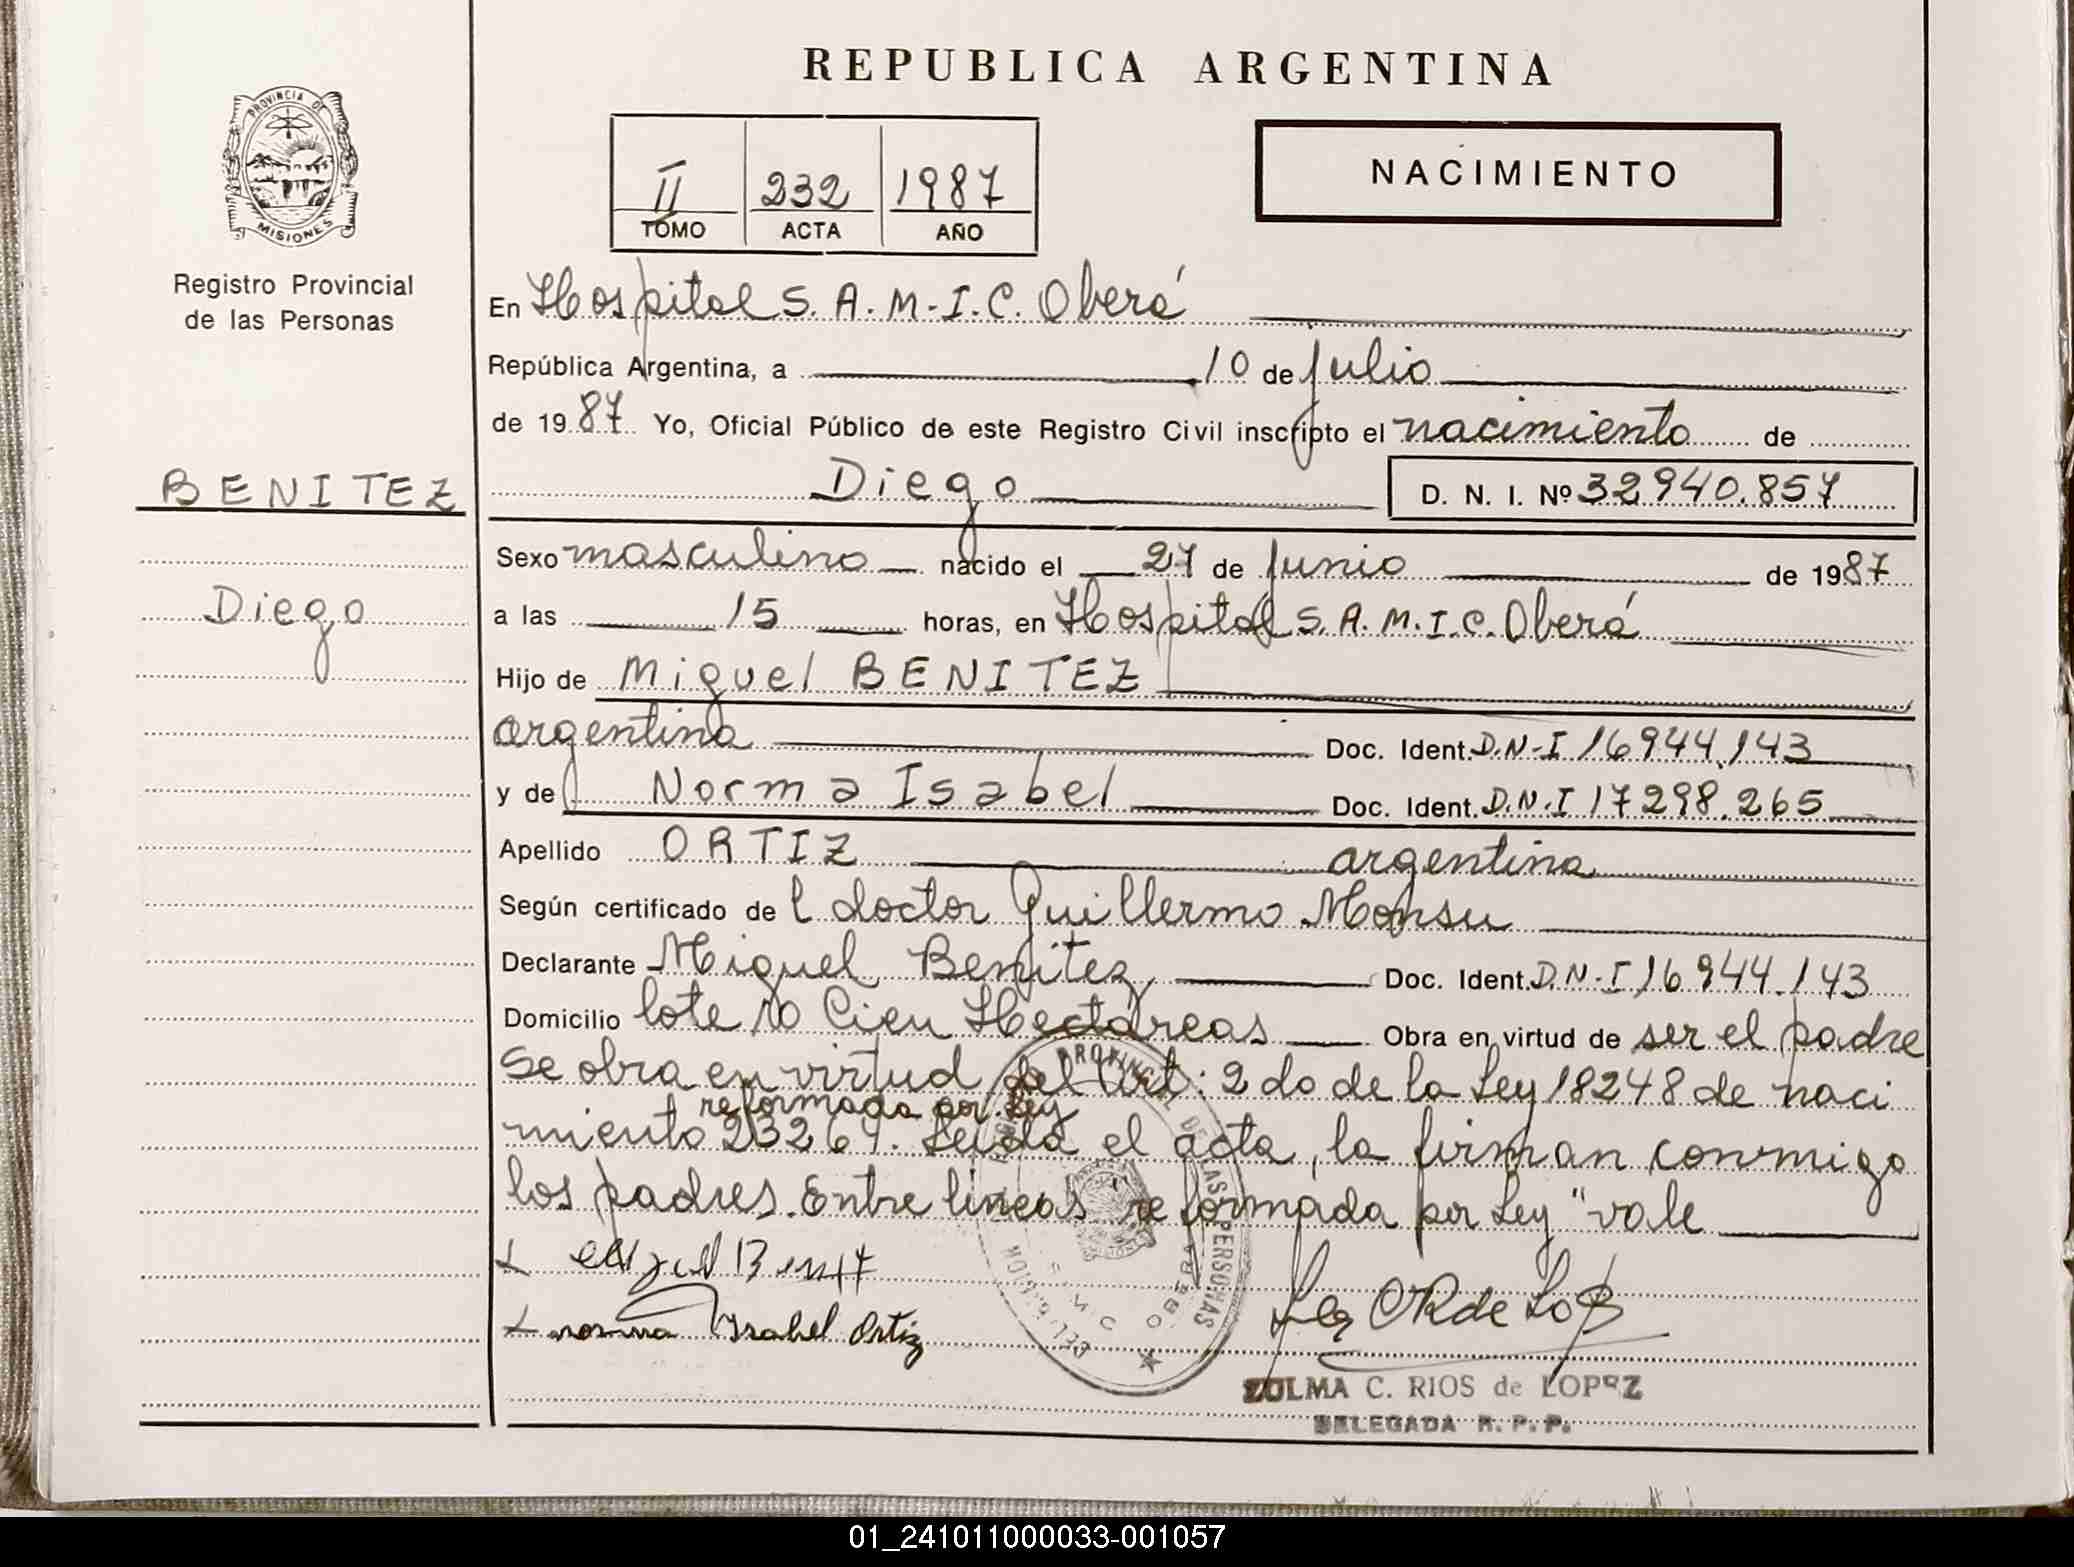 REPUBLICA ARGENTINA
PROVINCIA DE
MISIONES
Registro Provincial
de las Personas
II 232 1987
TOMO ACTA AÑO
NACIMIENTO
En Hospital S.A.M.I.C. Oberá
República Argentina, a 10 de julio
de 1987 Yo, Oficial Público de este Registro Civil inscripto el nacimiento de
BENITEZ
Diego D. N. I. Nº 32940.857
Sexo masculino nacido el 27 de Junio de 1987
Diego
a las 15 horas, en Hospital S.A.M.I.C. Oberá
Hijo de Miguel BENITEZ
argentina Doc. Ident. D.N-I 16944.143
y de Norma Isabel Doc. Ident. D.N.I 17298.265
Apellido ORTIZ argentina
Según certificado de l doctor Guillermo Monsu
Declarante Miguel Benitez Doc. Ident. D.N-I 16944.143
Domicilio lote 10 Cien Hectareas Obra en virtud de ser el padre
Se obra en virtud del Art: 2do de la Ley 18248 de naci
reformada por Ley
miento 23264. Leida el acta, la firman conmigo
los padres. Entre lineas reformada por Ley "vale
PROVINCIAL DE LAS PERSONAS
OBERA
norma Ysabel Ortiz
ZULMA C. RIOS de LOPEZ
DELEGADA R. P. P.
01_241011000033-001057